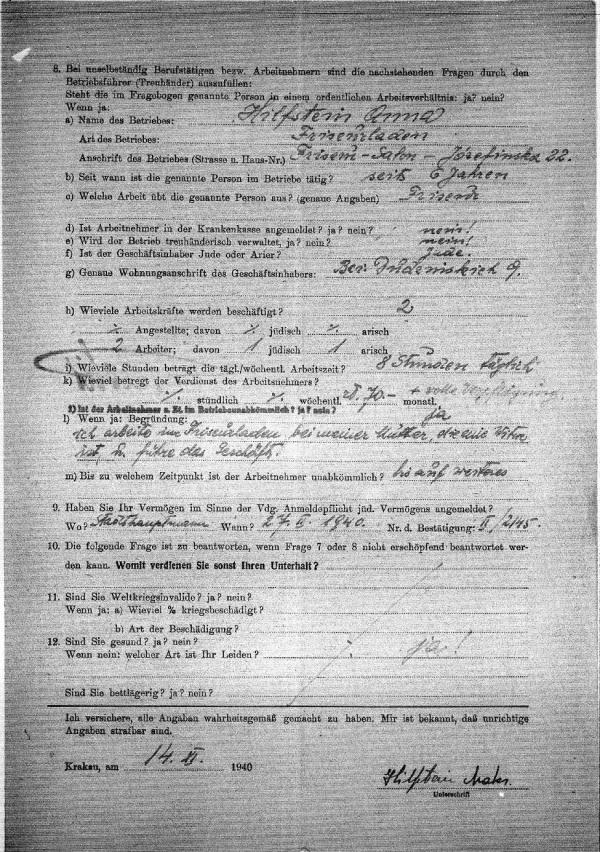 8. Bei unselbständig Berufstätigen bezw. Arbeitnehmern sind die nachstehenden Fragen durch den
Betriebsführer (Treuhänder) auszufüllen:
Steht die im Fragebogen genannte Person in einem ordentlichen Arbeitsverhältnis: ja? nein?
Wenn ja:
a) Name des Betriebes: Hilfstein Anna
Art des Betriebes: Friseurladen
Anschrift des Betriebes (Strasse u. Haus-Nr.) Friseur-Salon - Józefinska 22.
b) Seit wann ist die genannte Person im Betriebe tätig? seit 6 Jahren
c) Welche Arbeit übt die genannte Person aus? (genaue Angaben)
d) Ist Arbeitnehmer in der Krankenkasse angemeldet? ja? nein? nein!
e) Wird der Betrieb treuhänderisch verwaltet, ja? nein? nein!
f) Ist der Geschäftsinhaber Jude oder Arier? Jude.
g) Genaue Wohnungsanschrift des Geschäftsinhabers: 9.
h) Wieviele Arbeitskräfte werden beschäftigt? 2
Angestellte; davon jüdisch arisch
2 Arbeiter; davon 1 jüdisch 1 arisch
i) Wieviele Stunden beträgt die tägl./wöchentl. Arbeitszeit? 8 Stunden täglich
k) Wieviel betregt der Verdienst des Arbeitsnehmers? + volle Verpflegung
stündlich wöchentl. Zł. 70.- monatl.
l) Ist der Arbeitnehmer z. Zt. im Betriebe unabkömmlich? ja? nein? ja
l) Wenn ja: Begründung:
ich arbeite im Friseurladen bei meiner Mutter, die eine Witwe
ist, u. führe das Geschäft.
m) Bis zu welchem Zeitpunkt ist der Arbeitnehmer unabkömmlich? bis auf weiteres
9. Haben Sie Ihr Vermögen im Sinne der Vdg. Anmeldepflicht jüd. Vermögens angemeldet?
Wo? Stadthauptmann Wann? 27. II. 1940. Nr. d. Bestätigung: II/2145.
10. Die folgende Frage ist zu beantworten, wenn Frage 7 oder 8 nicht erschöpfend beantwortet wer-
den kann. Womit verdienen Sie sonst Ihren Unterhalt?
11. Sind Sie Weltkriegsinvalide? ja? nein?
Wenn ja: a) Wieviel % kriegsbeschädigt?
b) Art der Beschädigung?
12. Sind Sie gesund? ja? nein? ja!
Wenn nein: welcher Art ist Ihr Leiden?
Sind Sie bettlägerig? ja? nein?
Ich versichere, alle Angaben wahrheitsgemäß gemacht zu haben. Mir ist bekannt, daß unrichtige
Angaben strafbar sind.
Krakau, am 14. XI. 1940
Hilfstein
Unterschrift